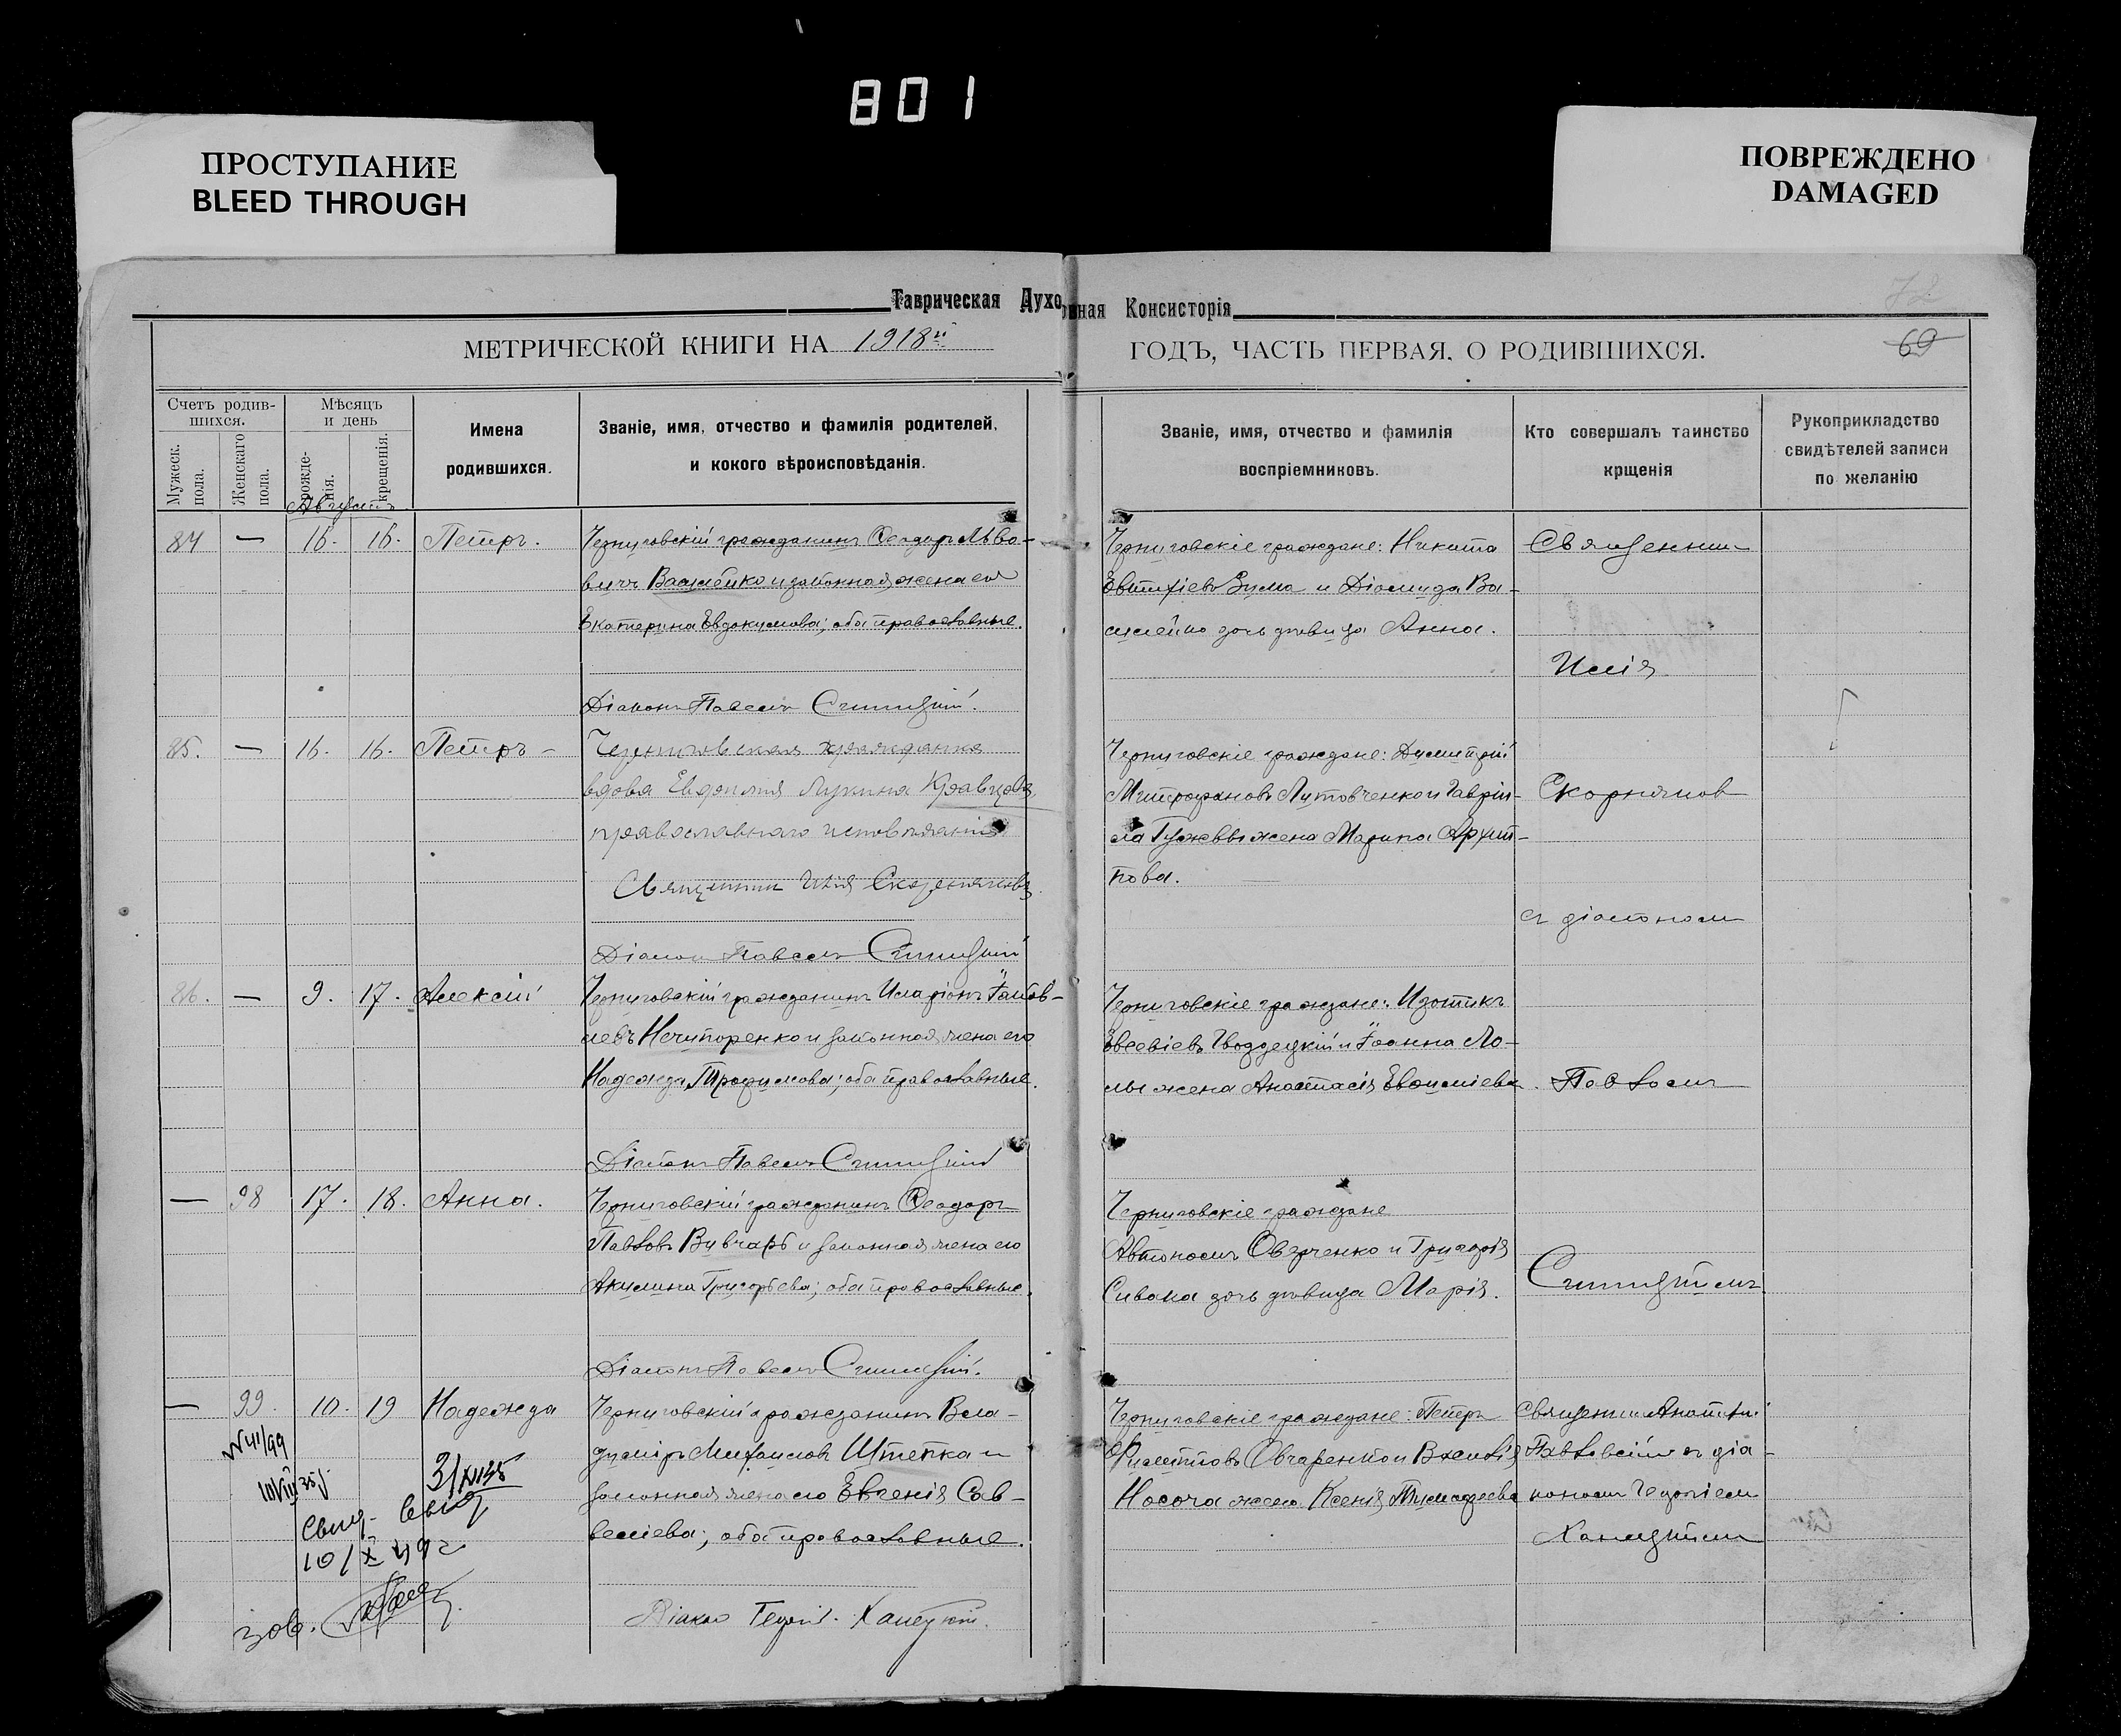 801
ПРОСТУПАНИЕ
BLEED THROUGH
ПОВРЕЖДЕНО
DAMAGED
Таврическая Духовная Консисторія
72
69
МЕТРИЧЕСКОЙ КНИГИ НА 1918й
ГОДЪ, ЧАСТЬ ПЕРВАЯ, О РОДИВШИХСЯ.
Счетъ родив-
шихся.
Мужеск. пола.
Женскаго пола.
Мѣсяцъ
и день
рожде-
нія.
крещенія.
Имена
родившихся.
Званіе, имя, отчество и фамилія родителей,
и кокого вѣроисповѣданія.
Званіе, имя, отчество и фамилія
воспріемниковъ.
Кто совершалъ таинство
крщенія
Рукоприкладство
свидѣтелей записи
по желанію
Августъ
84 — 16. 16. Петръ.
Черниговскій гражданинъ Ѳеодоръ Льво-
вичъ и законная жена его
Екатерина Евдокимова; оба православные.
Діаконъ Павелъ
Черниговскіе граждане: Никита
Евтихіевъ Зима и Діомида Ва-
дочь дѣвица Анна.
85. — 16. 16. Петръ —
Черниговская гражданка
вдова Евфимія Лукина Кравцова
православнаго исповѣданія
Священникъ Илія Скорняковъ
Діаконъ Павелъ
Черниговскіе граждане: Димитрій
Митрофановъ Литовченко и Гаврі-
ла жена Марина Архип-
пова.
86. — 9. 17. Алексій
Черниговскій гражданинъ Иларіонъ Іаков-
левъ Нечипоренко и законная жена его
Надежда Трофимова; оба православные.
Діаконъ Павелъ
Черниговскіе граждане: Изотикъ
Евсевіевъ Гвоздецкій и Іоанна Ло-
жена Анастасія Евѳиміева.
— 98 17. 18. Анна.
Черниговскій гражданинъ Ѳеодоръ
Павловъ Вивчарь и законная жена его
Акилина Григорьева; оба православные.
Діаконъ Павелъ
Черниговскіе граждане
Автономъ Оверченко и Григорія
Сивака дочь дѣвица Марія.
Священник
Илія
Скорняков
съ діакономъ
Павломъ
— 99. 10. 19 Надежда
Черниговскій гражданинъ Вла-
диміръ Михаиловъ Штепка и
законная жена его Евгенія Сав-
веліева; оба православные.
Діакон Георгій
Черниговскіе граждане: Петръ
Филипповъ Овчаренко и Василія
Носача жена Ксенія Тимофеева
Священник Анатолій
Павловскій съ діа-
кономъ Георгіемъ
N 41/99
10/VIII 35 г.
3/XI 35
10/X 49 г
зав.